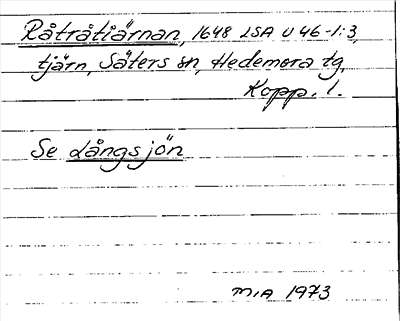 Råtråtiärnan, 1648 LSA U 46-1:3,
tjärn, Säters sn, Hedemora tg,
Kopp. l.
Se Långsjön
MIA 1973